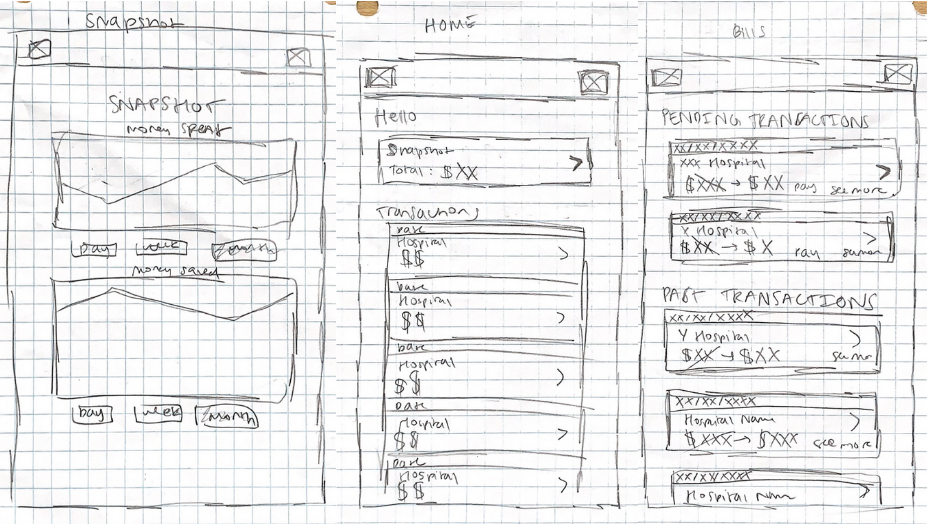 Snapshot
SNAPSHOT
money spent
day week month
money saved
day week month
HOME
Hello
Snapshot
Total : $XX
Transactions
Date
Hospital
$$
Date
Hospital
$$
Date
Hospital
$$
Date
Hospital
$$
Date
Hospital
$$
Bills
PENDING TRANSACTIONS
XX/XX/XXXX
XXX Hospital
$XXX → $XX pay see more
XX/XX/XXXX
X Hospital
$XX → $X pay
PAST TRANSACTIONS
XX/XX/XXXX
Y Hospital
$XX → $XX
XX/XX/XXXX
Hospital Name
$XXX → $XXX see more
XX/XX/XXXX
Hospital Name